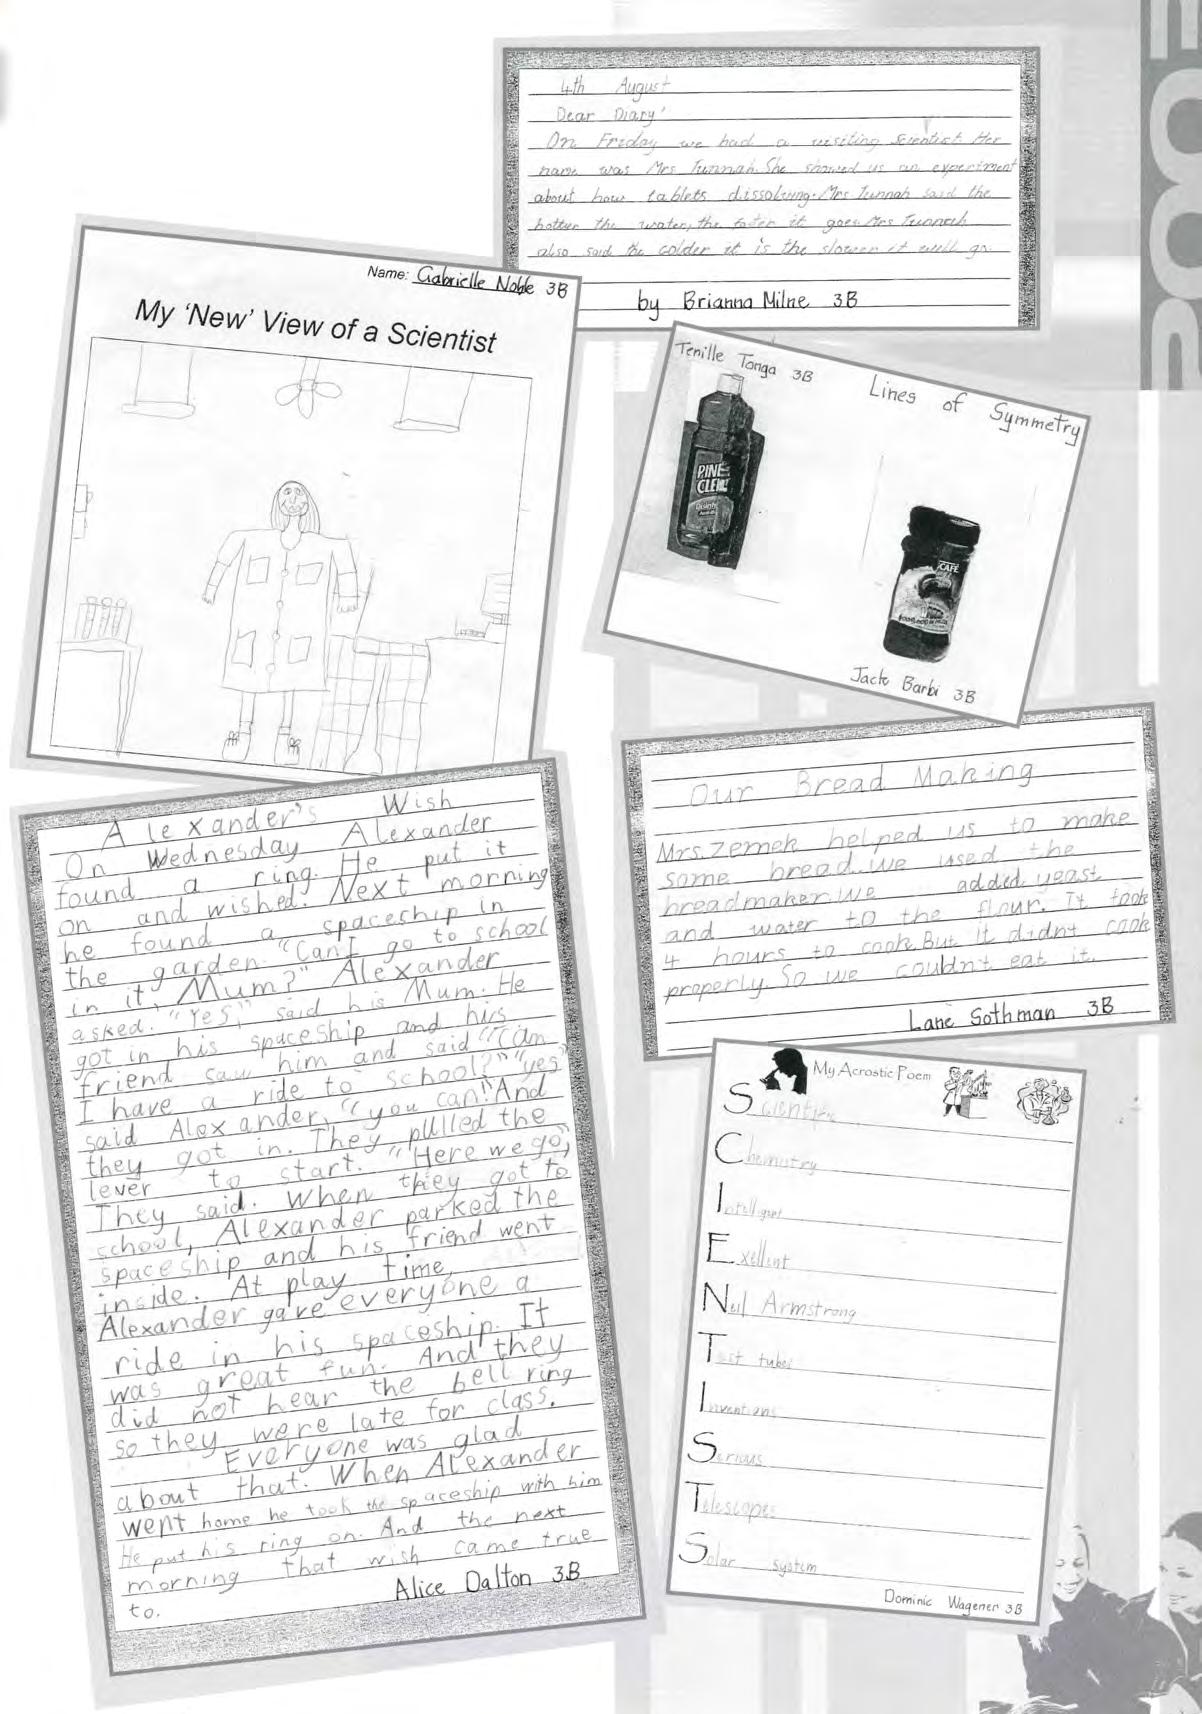 4th August
Dear Diary'
On Friday we had a visiting scientist. Her
name was Mrs Tunnah. She showed us an experiment
about how tablets dissolving. Mrs Tunnah said the
hotter the water, the faster it goes. Mrs Tunnah
also said the colder it is the slower it will go.
by Brianna Milne 3B
Name: Gabrielle Noble 3B
My 'New' View of a Scientist
Tenille Tonga 3B
Lines of Symmetry
PINE
CLEN
CAFÉ
Jack Barbi 3B
Our Bread Making
Mrs. Zemek helped us to make
some bread. we used the
breadmaker. we added yeast
and water to the flour. It took
4 hours to cook. But it didnt cook
properly. So we couldn't eat it.
Lane Sothman 3B
Alexander's Wish
On Wednesday Alexander
found a ring. He put it
on and wished. Next morning
he found a spaceship in
the garden. "Can I go to school
in it, Mum?" Alexander
asked. "Yes," said his Mum. He
got in his spaceship and his
friend saw him and said "Can
I have a ride to school?" "yes"
said Alexander, "you can." And
they got in. They pulled the
lever to start. "Here we go,"
They said. When they got to
school, Alexander parked the
spaceship and his friend went
inside. At play time,
Alexander gave everyone a
ride in his spaceship. It
was great fun. And they
did not hear the bell ring
so they were late for class.
Everyone was glad
about that. When Alexander
went home he took the spaceship with him
He put his ring on. And the next
morning that wish came true
to.
Alice Dalton 3B
My Acrostic Poem
Scientific
Chemistry
Intelligent
Exellent
Neil Armstrong
Test tubes
Inventions
Serious
Telescopes
Solar system
Dominic Wagener 3B